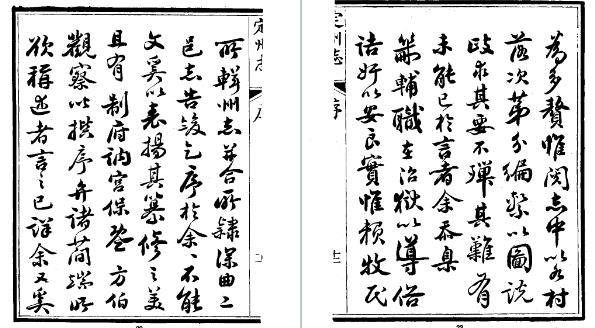 定州志
序
所輯州志并合所隸深曲二
邑志告竣乞序於余余不能
文奚以表揚其纂修之美
且有制府訥宮保暨方伯
觀察以撰序弁諸簡端所
欲稱述者言之已詳余又奚
為多贅惟閱志中以各村
落次第分編繫以圖說
政求其要不殫其難有
未能已於言者余忝臬
畿輔職在治獄以導俗
詰奸以安良實惟賴牧民
定州志
序
十二